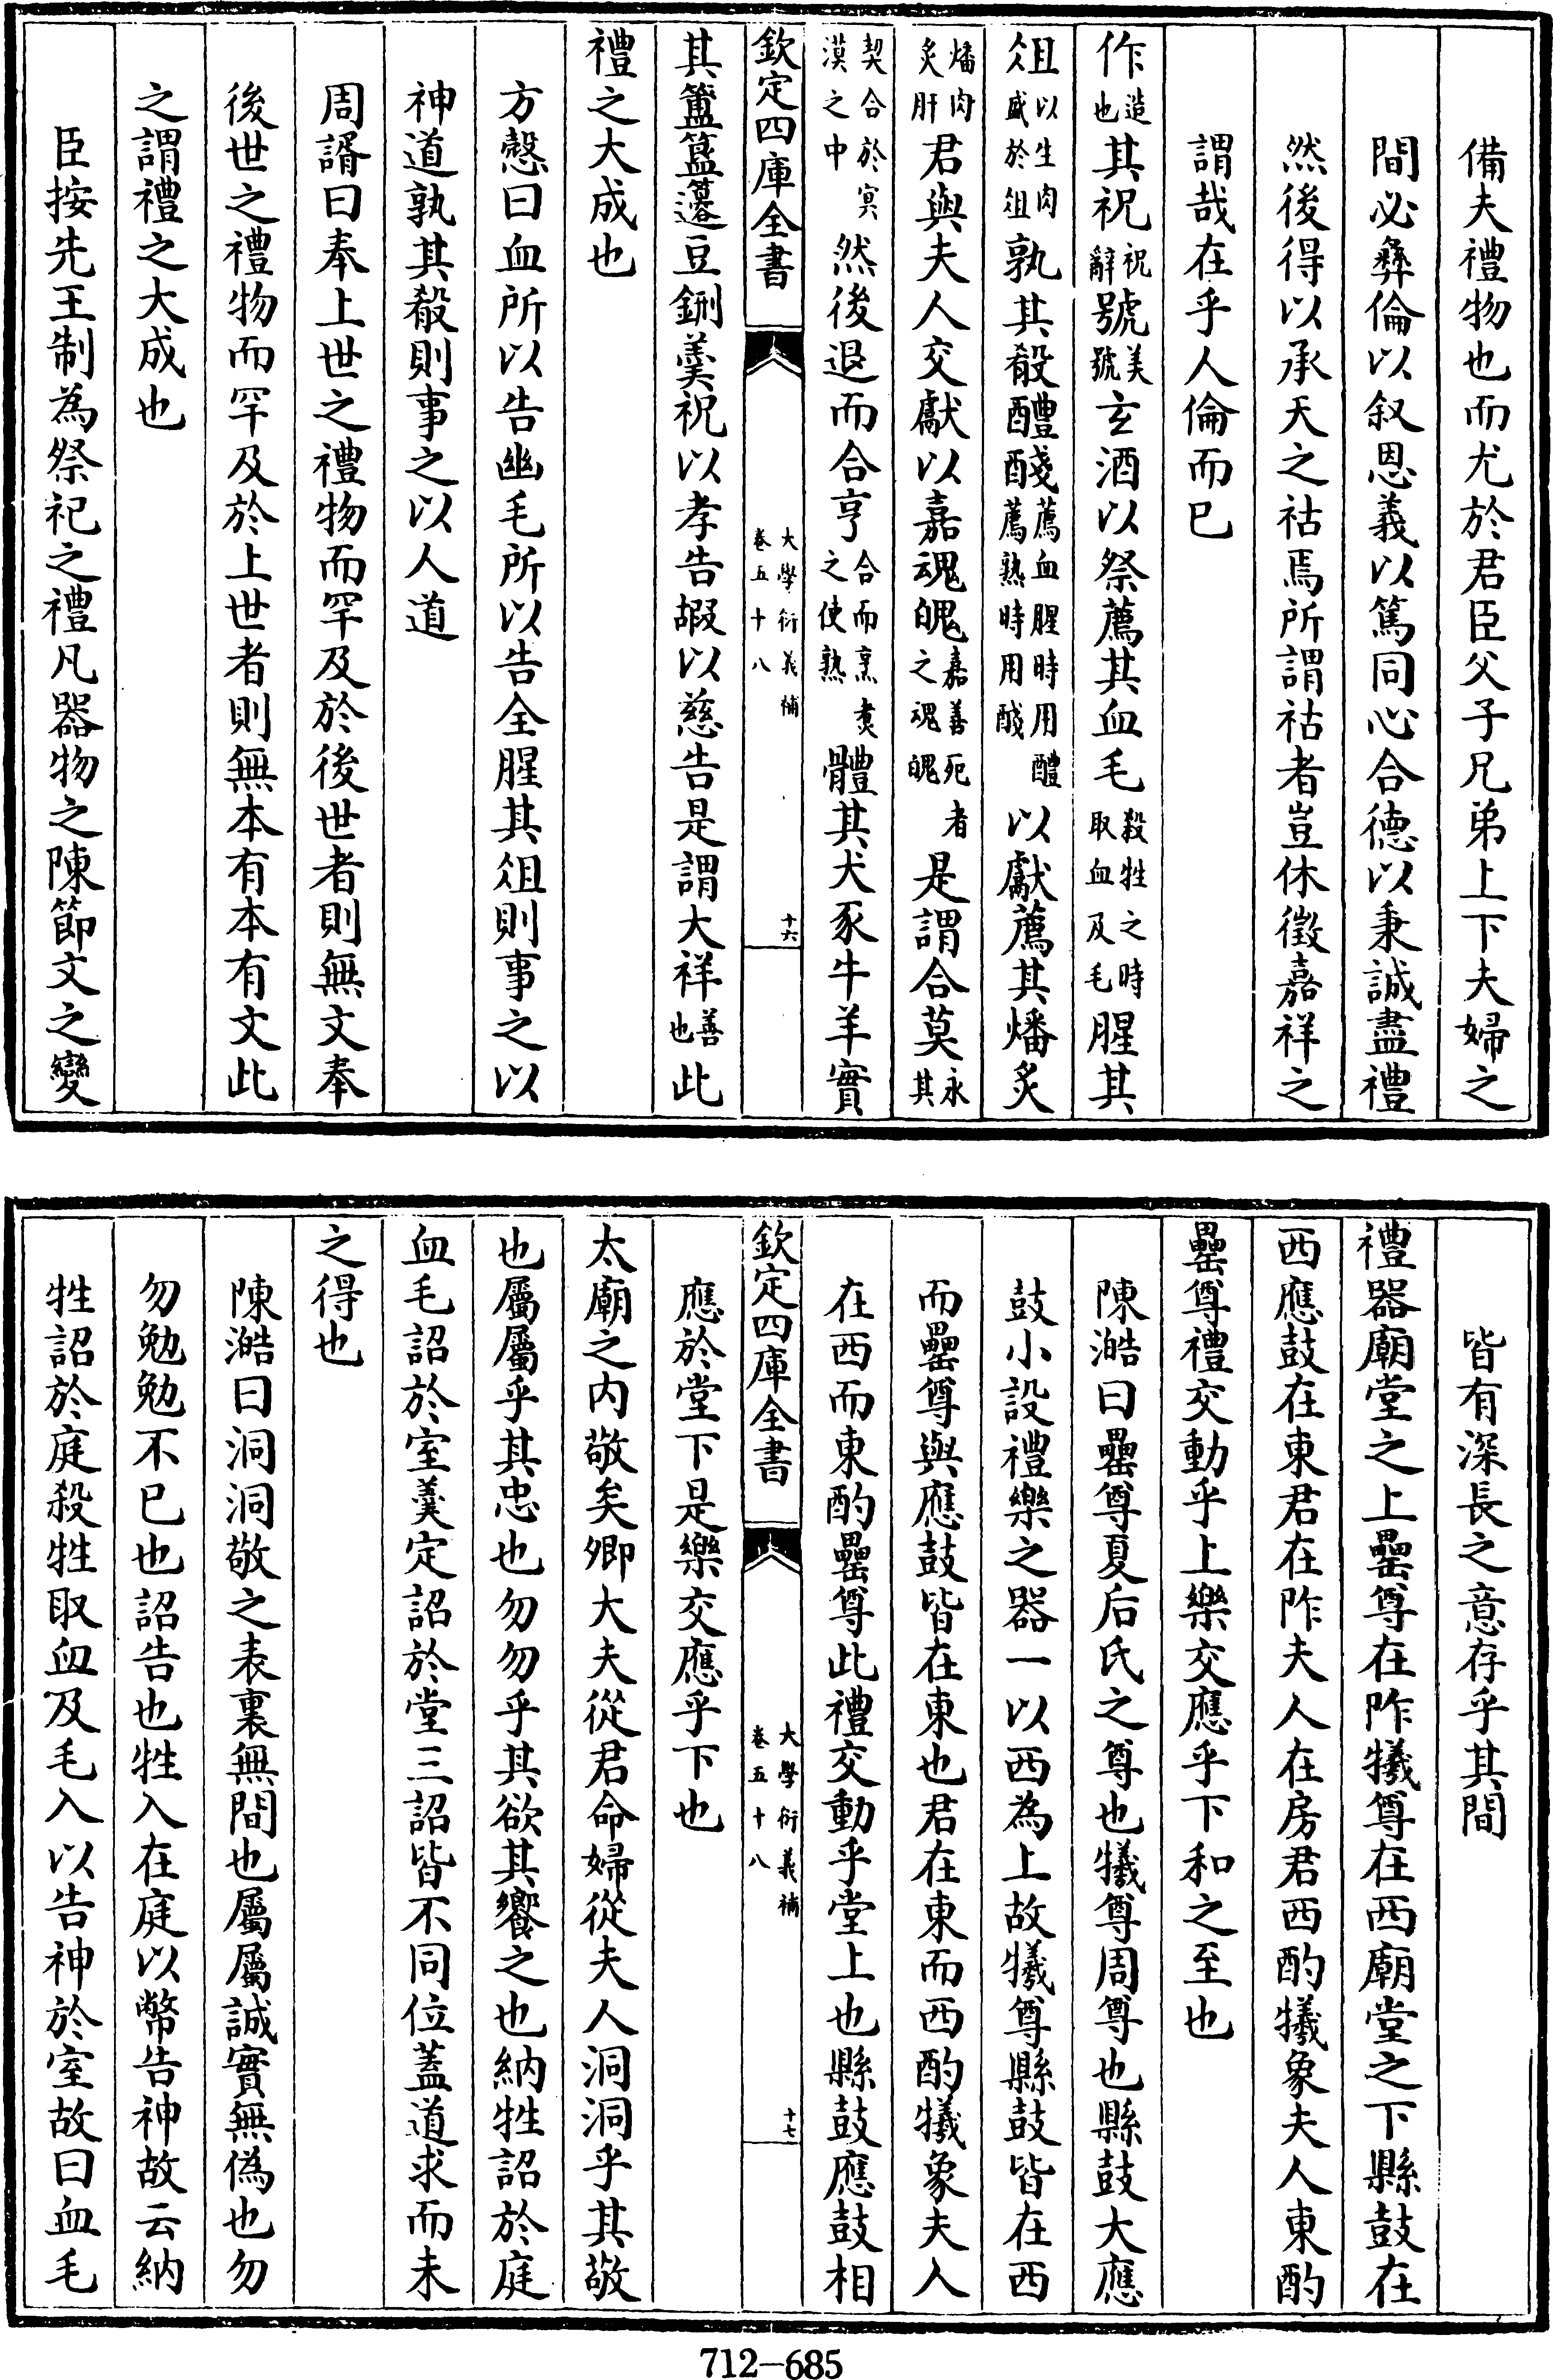 備夫禮物也而尤於君臣父子兄弟上下夫婦之
間必彝倫以叙恩義以篤同心合德以秉誠盡禮
然後得以承天之祜焉所謂祜者豈休徵嘉祥之
謂哉在乎人倫而已
作造也其祝祝辭號美號玄酒以祭薦其血毛殺牲之時取血及毛腥其
俎以生肉盛於俎孰其殽醴醆薦血腥時用醴薦熟時用醆以獻薦其燔炙
燔肉炙肝君與夫人交獻以嘉魂魄嘉善死者之魂魄是謂合莫永其
契合於冥漠之中然後退而合亨合而烹煮之使熟體其犬豕牛羊實
欽定四庫全書 大學衍義補 卷五十八 十六
其簠簋籩豆鉶羹祝以孝告嘏以慈告是謂大祥善也此
禮之大成也
方慤曰血所以告幽毛所以告全腥其俎則事之以
神道孰其殽則事之以人道
周諝曰奉上世之禮物而罕及於後世者則無文奉
後世之禮物而罕及於上世者則無本有本有文此
之謂禮之大成也
臣按先王制為祭祀之禮凡器物之陳節文之變
皆有深長之意存乎其間
禮器廟堂之上罍尊在阼犧尊在西廟堂之下縣鼓在
西應鼓在東君在阼夫人在房君西酌犧象夫人東酌
罍尊禮交動乎上樂交應乎下和之至也
陳澔曰罍尊夏后氏之尊也犧尊周尊也縣鼓大應
鼓小設禮樂之器一以西為上故犧尊縣鼓皆在西
而罍尊與應鼓皆在東也君在東而西酌犧象夫人
在西而東酌罍尊此禮交動乎堂上也縣鼓應鼓相
欽定四庫全書 大學衍義補 卷五十八 十七
應於堂下是樂交應乎下也
太廟之内敬矣卿大夫從君命婦從夫人洞洞乎其敬
也屬屬乎其忠也勿勿乎其欲其饗之也納牲詔於庭
血毛詔於室羹定詔於堂三詔皆不同位蓋道求而未
之得也
陳澔曰洞洞敬之表裏無間也屬屬誠實無偽也勿
勿勉勉不已也詔告也牲入在庭以幣告神故云納
牲詔於庭殺牲取血及毛入以告神於室故曰血毛
712-685